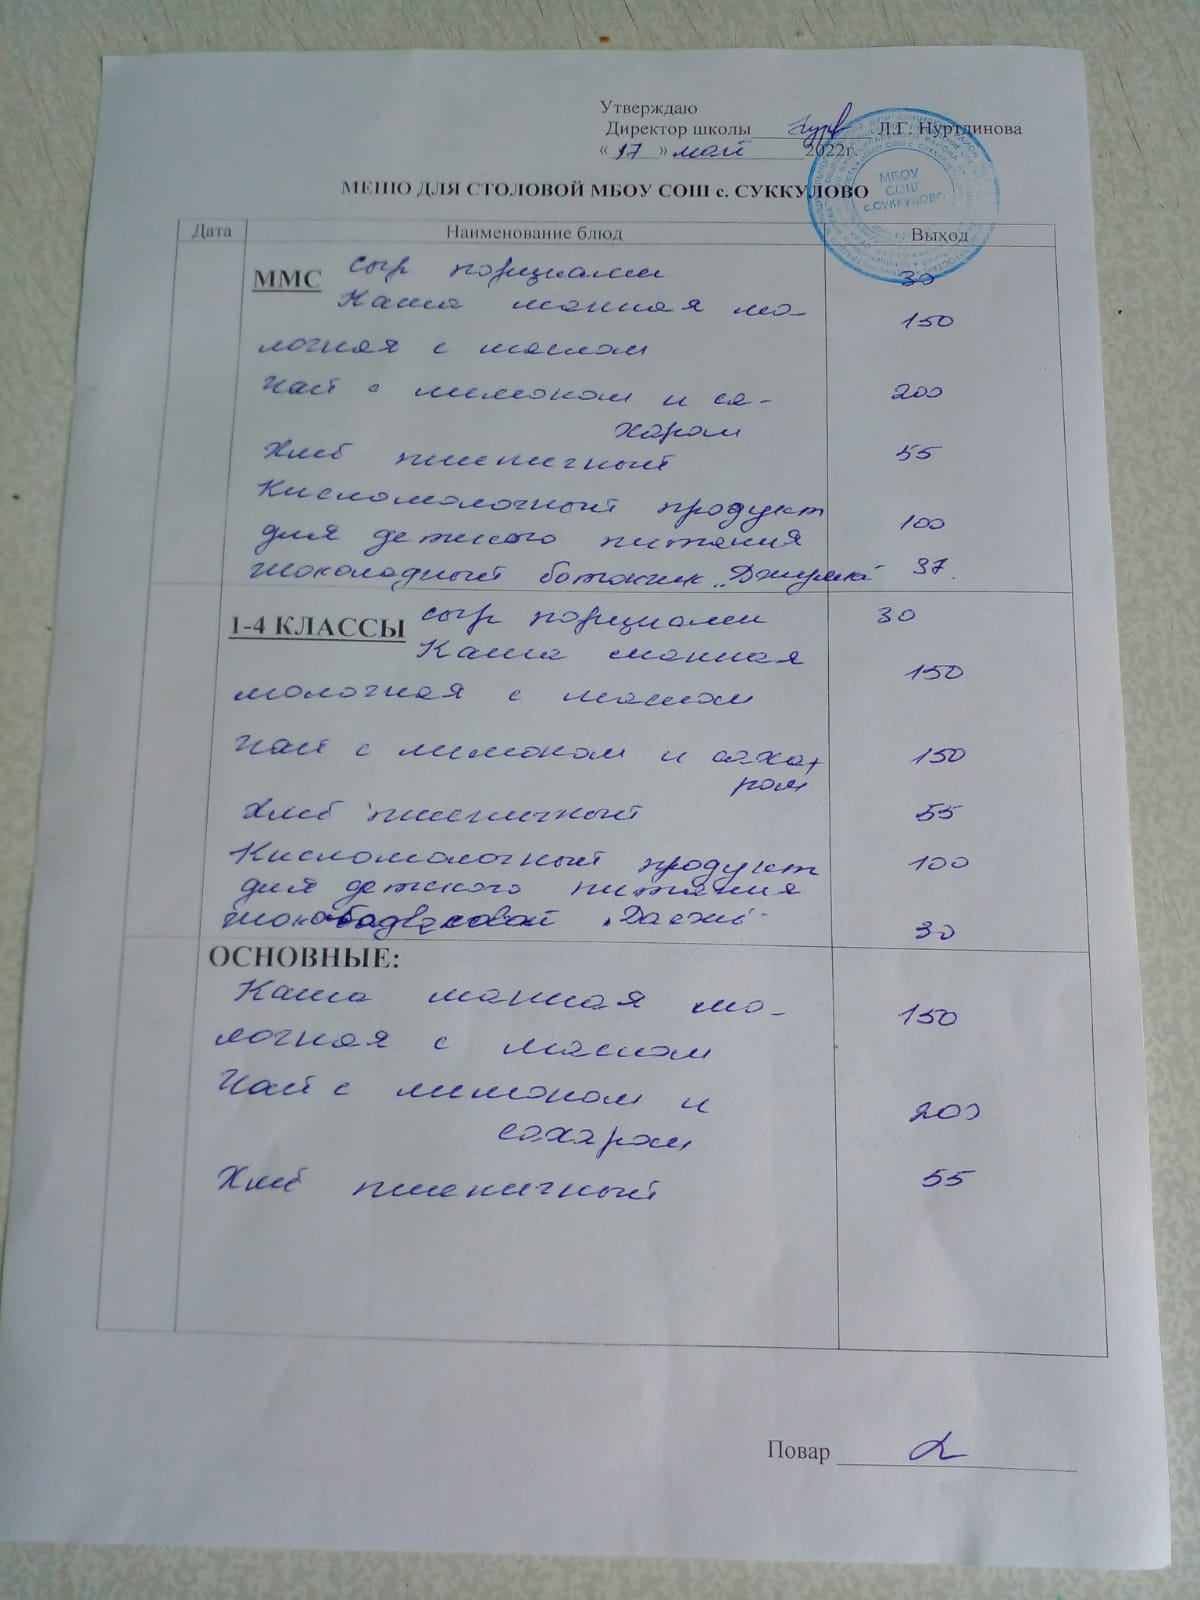 Утверждаю
Директор школы Л.Г. Нуртдинова
« 17 » май 2022г.
МБОУ
СОШ
с.СУККУЛОВО
МЕНЮ ДЛЯ СТОЛОВОЙ МБОУ СОШ с. СУККУЛОВО
Дата Наименование блюд Выход
ММС сыр порциами 30
Каша манная мо- 150
лочная с маслом
Чай с лимоном и са- 200
харом
Хлеб пшеничный 55
Кисломолочный продукт 100
для детского питания
шоколадный батончик 37
1-4 КЛАССЫ сыр порциами 30
Каша манная 150
молочная с маслом
Чай с лимоном и саха- 150
ром
Хлеб пшеничный 55
Кисломолочный продукт 100
для детского питания
30
ОСНОВНЫЕ:
Каша манная мо- 150
лочная с маслом
Чай с лимоном и 200
сахаром
Хлеб пшеничный 55
Повар